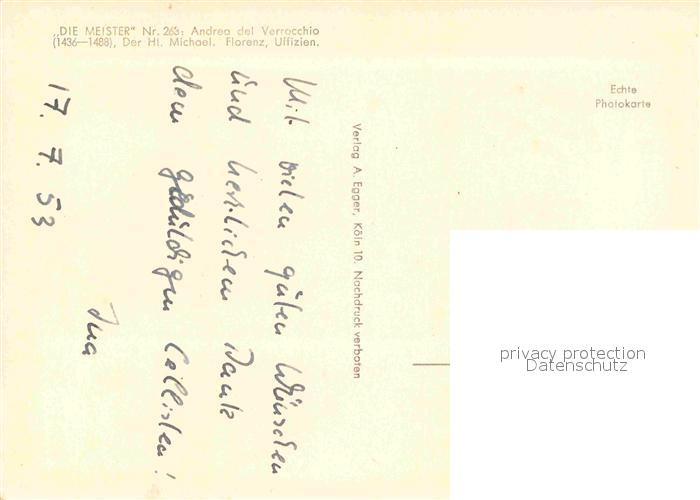 „DIE MEISTER" Nr. 263: Andrea del Verrocchio
(1436—1488), Der Hl. Michael. Florenz, Uffizien.
Echte
Photokarte
Verlag A. Egger, Köln 10. Nachdruck verboten
Mit vielen guten Wünschen
und herzlichem Dank
dem geduldigen Cellisten!
Ina
17. 7. 53
privacy protection
Datenschutz